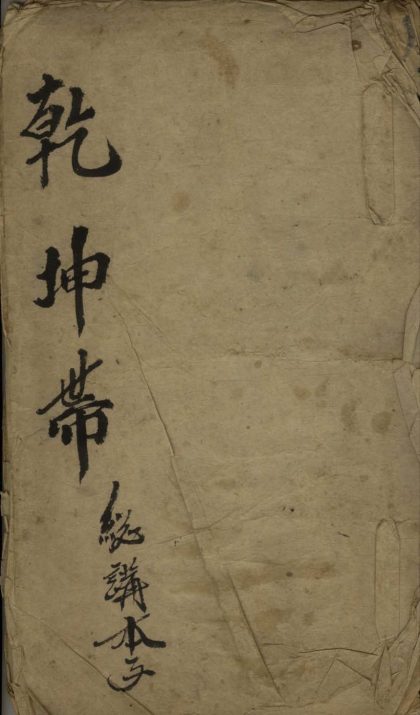 乾坤帶
總講本子